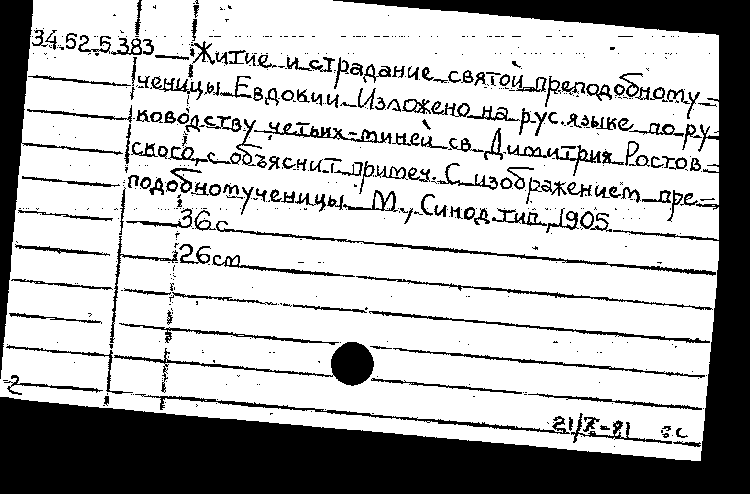 34.52.5.383 Житие и страдание святой преподобному-
ченицы Евдокии. Изложено на рус. языке по ру-
ководству четьих-миней св. Димитрия Ростов-
ского, с объяснит. примеч. С изображением пре-
подобномученицы. М., Синод. тип., 1905
36 с
26 см
2
21/X-81